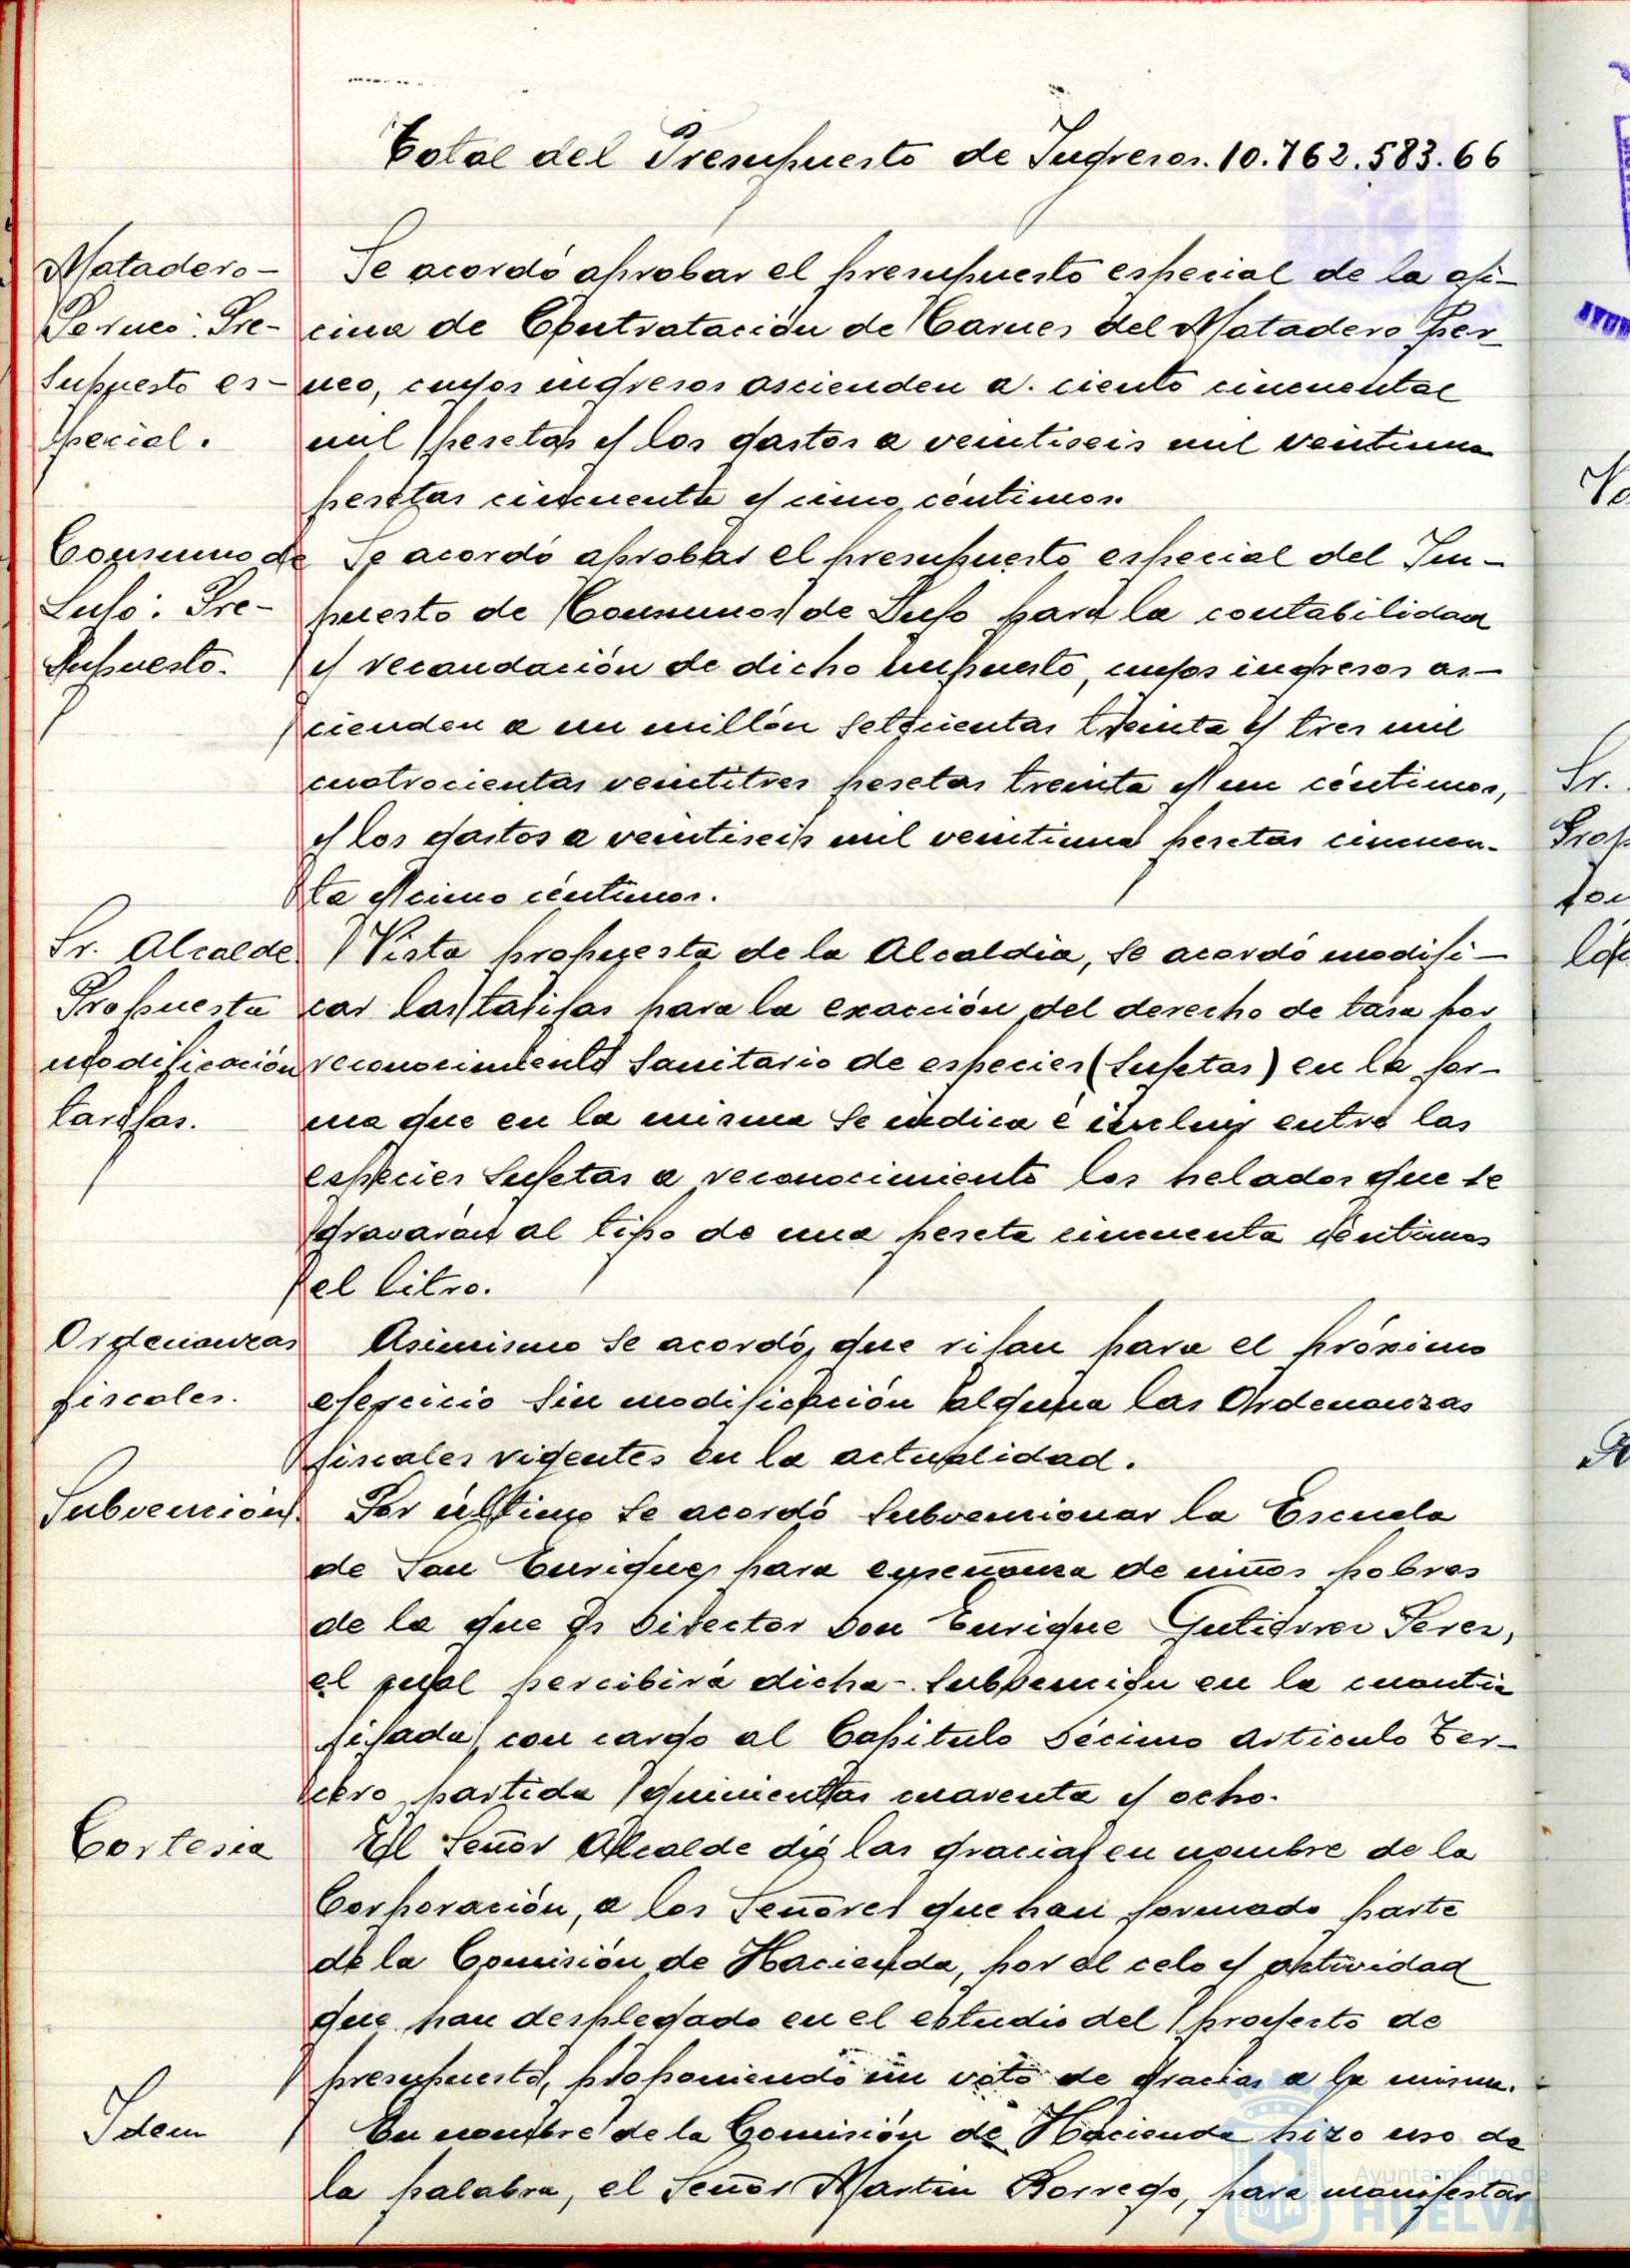 Total del Presupuesto de Ingresos. 10.762.583.66
Matadero-
Perneo: Pre-
supuesto es-
pecial.
Se acordó aprobar el presupuesto especial de la ofi-
cina de Contratación de Carnes del Matadero Per-
neo, cuyos ingresos ascienden a. ciento cincuenta
mil pesetas y los gastos a veintiseis mil veintiuna
pesetas cincuenta y cinco céntimos.
Consumo de
Lujo: Pre-
supuesto.
Se acordó aprobar el presupuesto especial del Im-
puesto de Consumos de Lujo para la contabilidad
y recaudación de dicho impuesto, cuyos ingresos as-
cienden a un millón setecientas treinta y tres mil
cuatrocientas veintitres pesetas treinta y un céntimos,
y los gastos a veintiseis mil veintiuna pesetas cincuen-
ta y cinco céntimos.
Sr. Alcalde
Propuesta
modificación
tarifas.
Vista propuesta de la Alcaldia, se acordó modifi-
car las tarifas para la exacción del derecho de tasa por
reconocimiento sanitario de especies (sujetas) en la for-
ma que en la misma se indica é incluir entre las
especies sujetas a reconocimiento los helados que se
gravarán al tipo de una peseta cincuenta céntimos
el litro.
Ordenanzas
fiscales.
Asimismo se acordó, que rijan para el próximo
ejercicio sin modificación alguna las Ordenanzas
fiscales vigentes en la actualidad.
Subvención.
Por último se acordó subvencionar la Escuela
de San Enrique, para enseñanza de niños pobres
de la que es Director Don Enrique Gutiérrez Perez,
el cual percibirá dicha-subvención en la cuantia
fijada, con cargo al Capitulo Décimo articulo Ter-
cero, partida quinientas cuarenta y ocho.
Cortesia
El Señor Alcalde dió las gracias en nombre de la
Corporación, a los Señores que han formado parte
de la Comisión de Hacienda, por el celo y actividad
que han desplegado en el estudio del proyecto de
presupuesto, proponiendo un voto de gracias a la misma.
Idem
En nombre de la Comisión de Hacienda hizo uso de
la palabra, el Señor Martin Borrego, para manifestar
Ayuntamiento de
HUELVA
Sr.